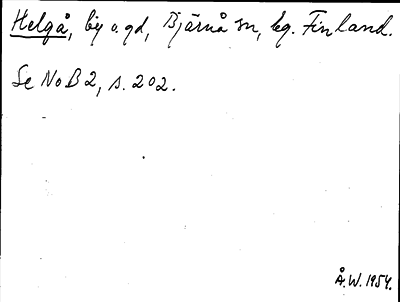 Helgå, by o. gd, Bjärnå sn, lg. Finland.
Se NoB 2, s. 202.
Å.W. 1954.